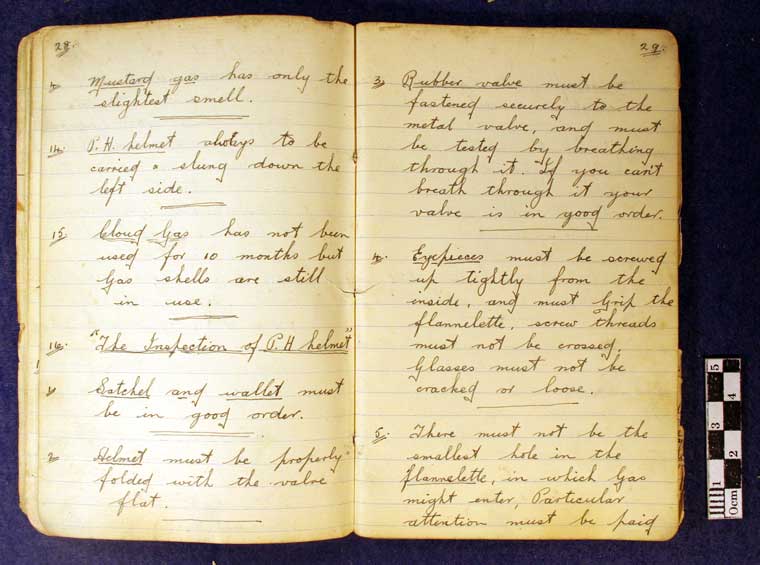 28.
Mustard gas has only the
slightest smell.
14. P.H. helmet always to be
carried & slung down the
left side.
15. Cloud Gas has not been
used for 10 months but
Gas shells are still
in use.
16. "The Inspection of P.H helmet"
1. Satchel and wallet must
be in good order.
2. Helmet must be properly
folded with the valve
flat.
29.
3. Rubber valve must be
fastened securely to the
metal valve, and must
be tested by breathing
through it. If you can't
breath through it your
valve is in good order.
4. Eyepieces must be screwed
up tightly from the
inside, and must Grip the
flannelette, screw threads
must not be crossed.
Glasses must not be
cracked or loose.
5. There must not be the
smallest hole in the
flannelette, in which Gas
might enter, Particular
attention must be paid
0cm 1 2 3 4 5